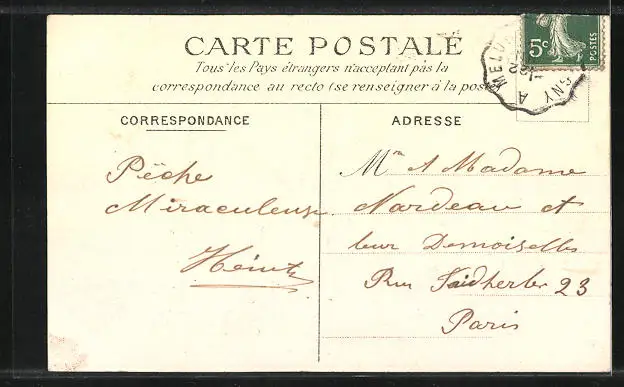 CARTE POSTALE
Tous les Pays étrangers n'acceptant pas la
correspondance au recto (se renseigner à la poste
5c
POSTES
MELU
GNY A
22
CORRESPONDANCE
ADRESSE
Pêche
Miraculeuse
Heintz
Mr et Madame
Nardeau et
leur Demoiselles
Rue Faidherbe 23
Paris